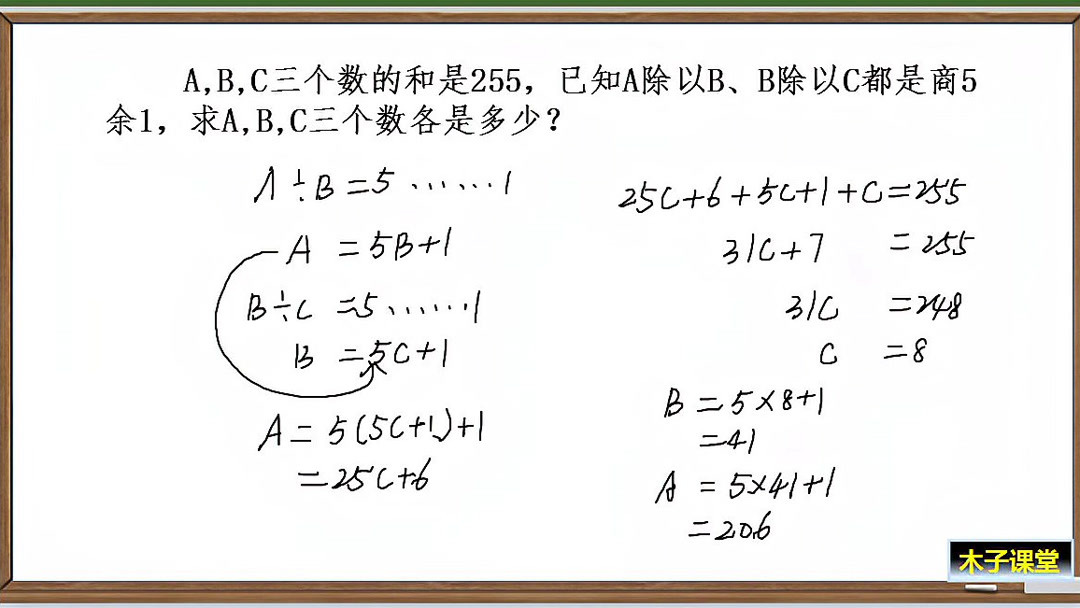 A,B,C三个数的和是255，已知A除以B、B除以C都是商5
余1，求A,B,C三个数各是多少？
A÷B=5……1
A=5B+1
B÷C=5……1
B=5C+1
A=5(5C+1)+1
=25C+6
25C+6+5C+1+C=255
31C+7=255
31C=248
C=8
B=5×8+1
=41
A=5×41+1
=206
木子课堂